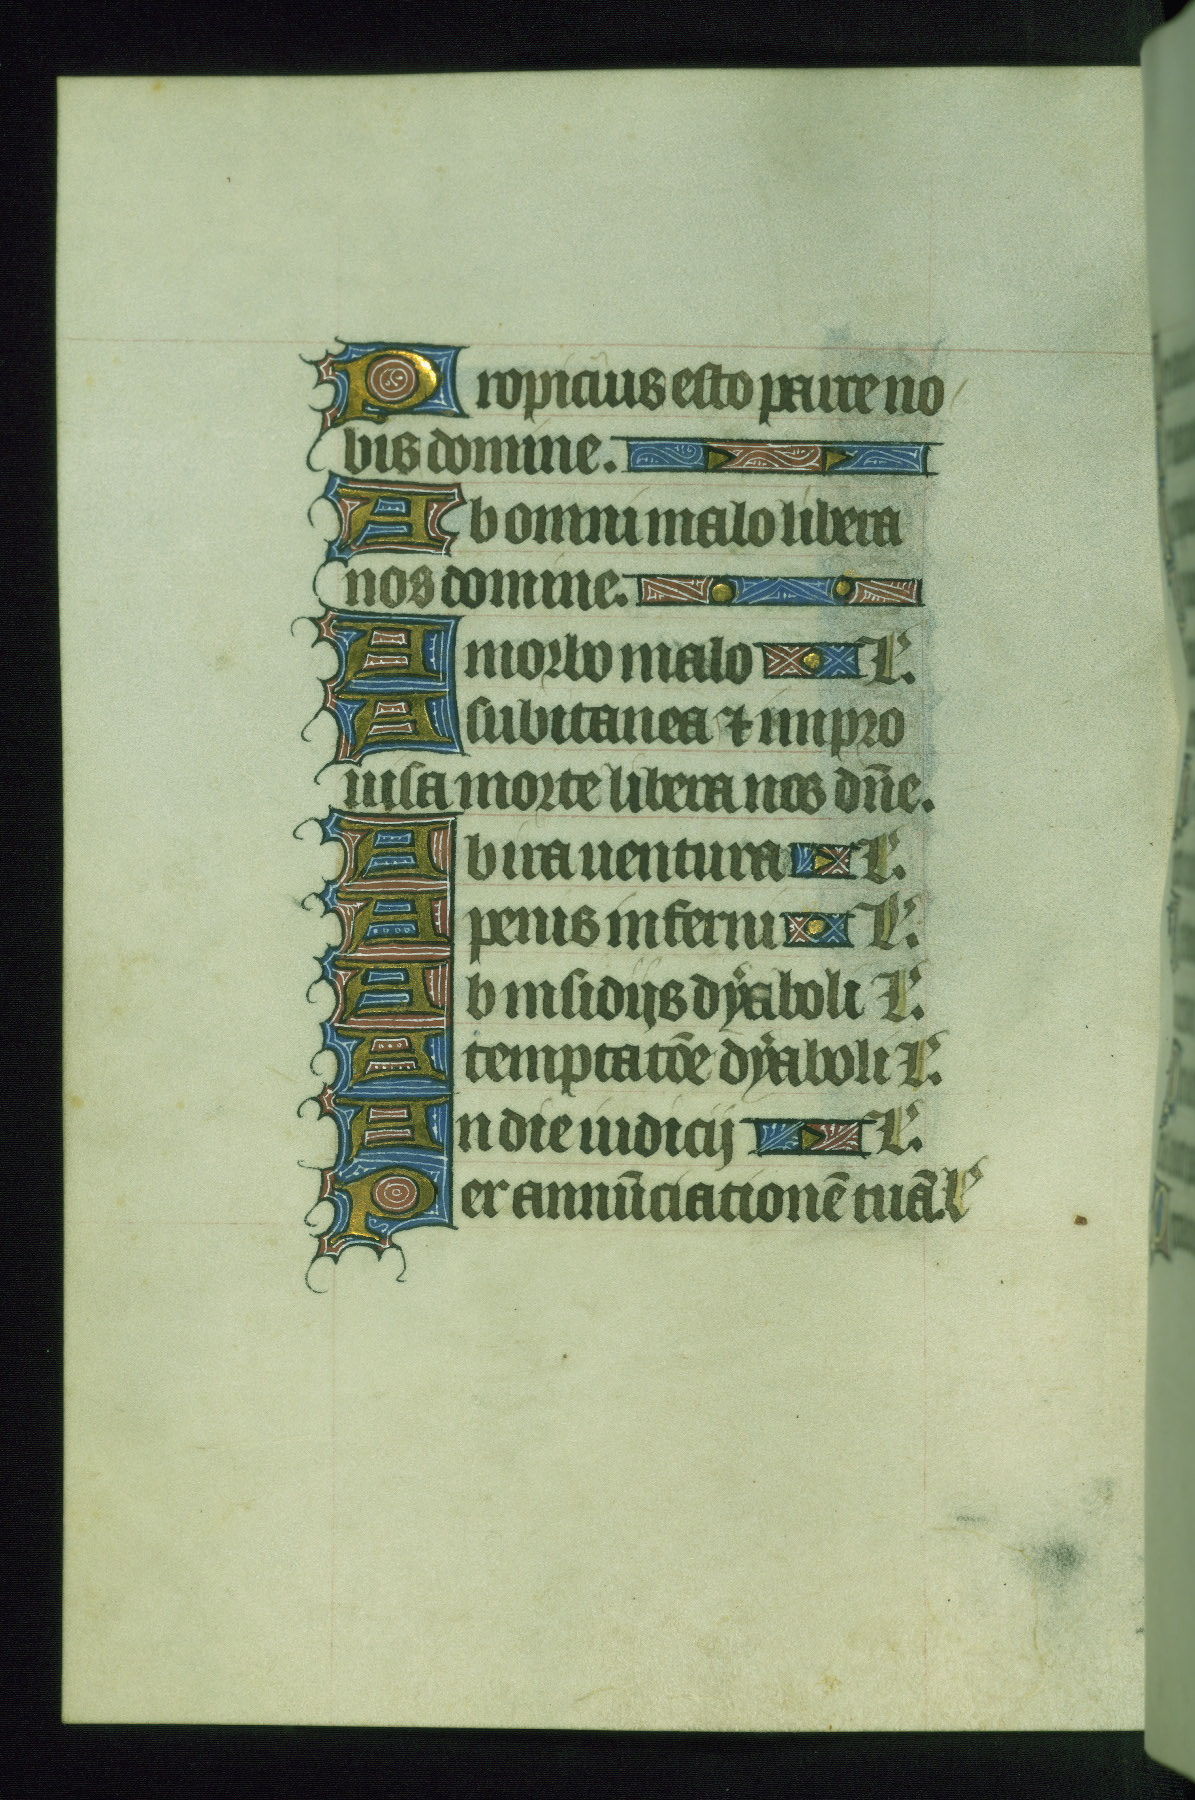 Propicius esto parce no
bis domine.
Ab omni malo libera
nos domine.
A morbo malo L'.
A subitanea ⁊ impro
uisa morte libera nos dn̄e.
Ab ira uentura L'.
A penis inferni L'.
Ab insidijs dyaboli L'.
A temptatōe dyaboli L'.
An die iudicij L'.
Per annūciationē tuā. L'